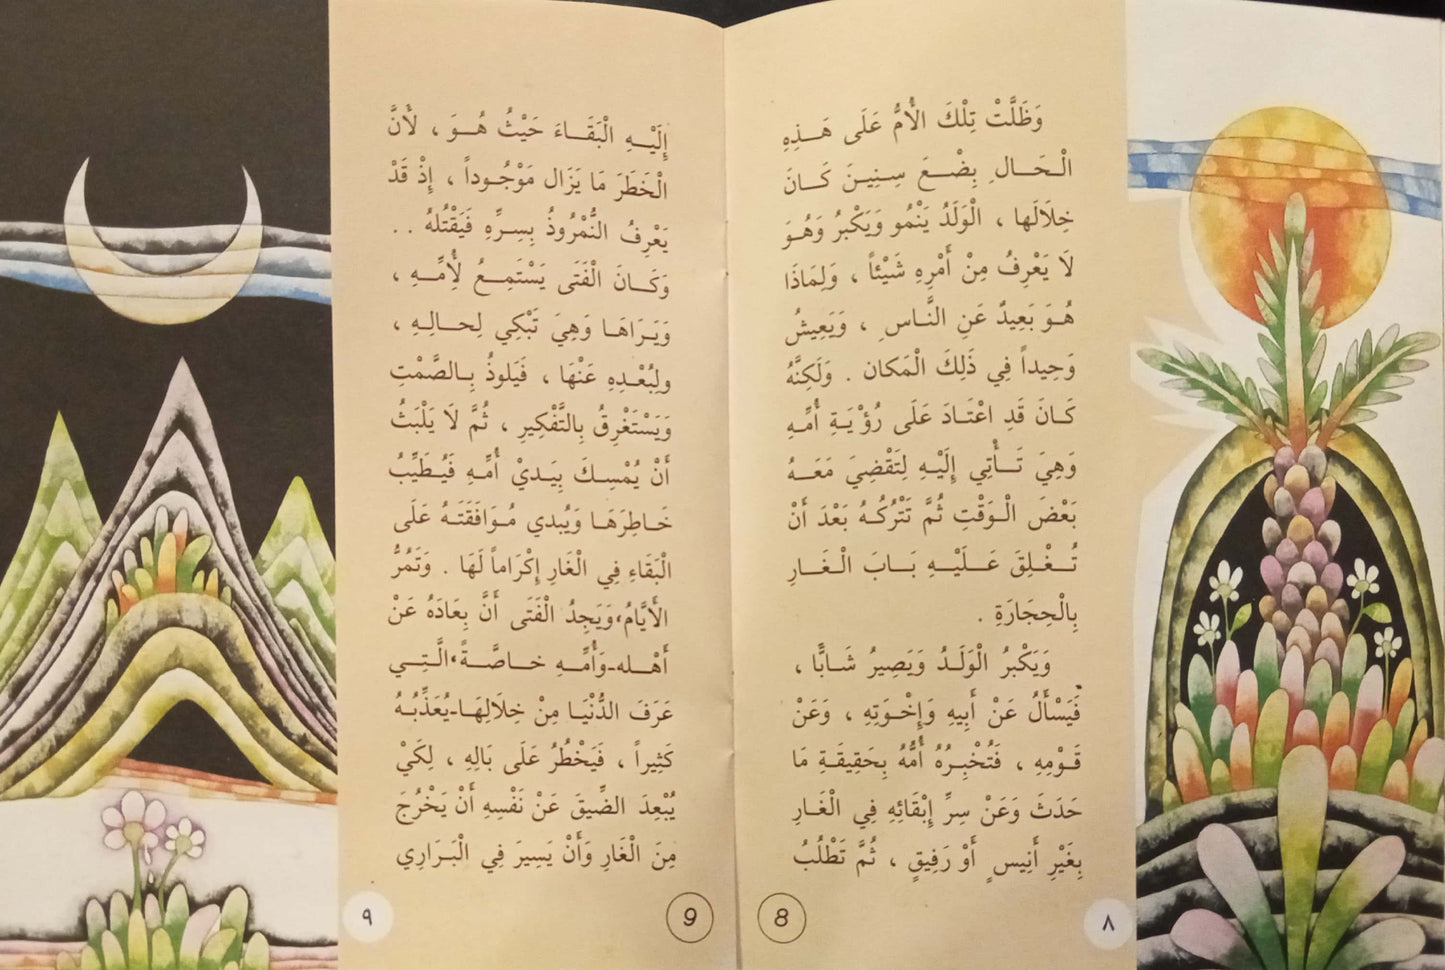 وَظَلَّتْ تِلْكَ الأُمُّ عَلَى هَـذِهِ
الْـحَـالِ بِضْـعَ سِـنِيـنَ كَـانَ
خِلَالَها ، الْوَلَدُ يَنْمُو وَيَكْبُرُ وَهُـوَ
لَا يَعْرِفُ مِنْ أَمْرِهِ شَيْئاً ، وَلِمَاذَا
هُـوَ بَعِيدٌ عَنِ النَّـاسِ ، وَيَعِيشُ
وَحِيداً فِي ذَلِكَ الْمَكان . وَلَكِنَّهُ
كَـانَ قَدِ اعْتَـادَ عَلَى رُؤْيَـةِ أُمِّـهِ
وَهِيَ تَـأْتِي إِلَيْـهِ لِتَقْضِيَ مَعَـهُ
بَعْضَ الْـوَقْتِ ثُمَّ تَتْرُكُـهُ بَعْدَ أَنْ
تُـغْـلِقَ عَـلَيْـهِ بَـابَ الْـغَـارِ
بِالْحِجَارَةِ .
وَيَكْبُرُ الْوَلَـدُ وَيَصِيرُ شَـابًّا ،
فَيَسْأَلُ عَنْ أَبِيهِ وَإِخْوَتِهِ ، وَعَنْ
قَـوْمِهِ ، فَتُخْبِـرُهُ أُمُّهُ بِحَقِيقَـةِ مَا
حَدَثَ وَعَنْ سِرِّ إِبْقَائِهِ فِي الْغَارِ
بِغَيْرِ أَنِيسٍ أَوْ رَفِيقٍ ، ثُمَّ تَطْلُبُ
8
٨
إِلَيْـهِ الْبَقَـاءَ حَيْثُ هُـوَ ، لأَنَّ
الْخَطَرَ مَا يَزَال مَوْجُـوداً ، إِذْ قَدْ
يَعْرِفُ النُّمْرُوذُ بِسِـرِّهِ فَيَقْتُلهُ . .
وَكَـانَ الْفَتَى يَسْتَمِـعُ لِأُمِّـهِ ،
وَيَـرَاهَـا وَهِيَ تَبْكِي لِحـالِـهِ ،
ولِبُعْـدِهِ عَنْهَا ، فَيَلوذُ بِـالصَّمْتِ
وَيَسْتَغْرِقُ بِالتَّفْكِيرِ ، ثُمَّ لَا يَلْبَثُ
أَنْ يُمْسِـكَ بِيَـديْ أُمِّـهِ فَيُطَيِّبُ
خَـاطِرَهَـا وَيُبدي مُـوَافَقَتَـهُ عَلَى
الْبَقَاءِ فِي الْغَارِ إِكْرَاماً لَهَا . وَتَمُرُّ
الأَيَّامُ، وَيَجِدُ الْفَتَى أَنَّ بِعَادَهُ عَنْ
أَهْـله-وَأُمِّـهِ خـاصَّـةً، الَّتِـي
عَرَفَ الدُّنْيَـا مِنْ خِلَالِهَا-يُعَذِّبُـهُ
كَثِيراً ، فَيَخْطُرُ عَلَى بَالِهِ ، لِكَيْ
يُبْعِدَ الضِّيقَ عَنْ نَفْسِهِ أَنْ يَخْرُجَ
مِنَ الْغَارِ وَأَنْ يَسِيرَ فِي الْبَـرَارِي
9
٩